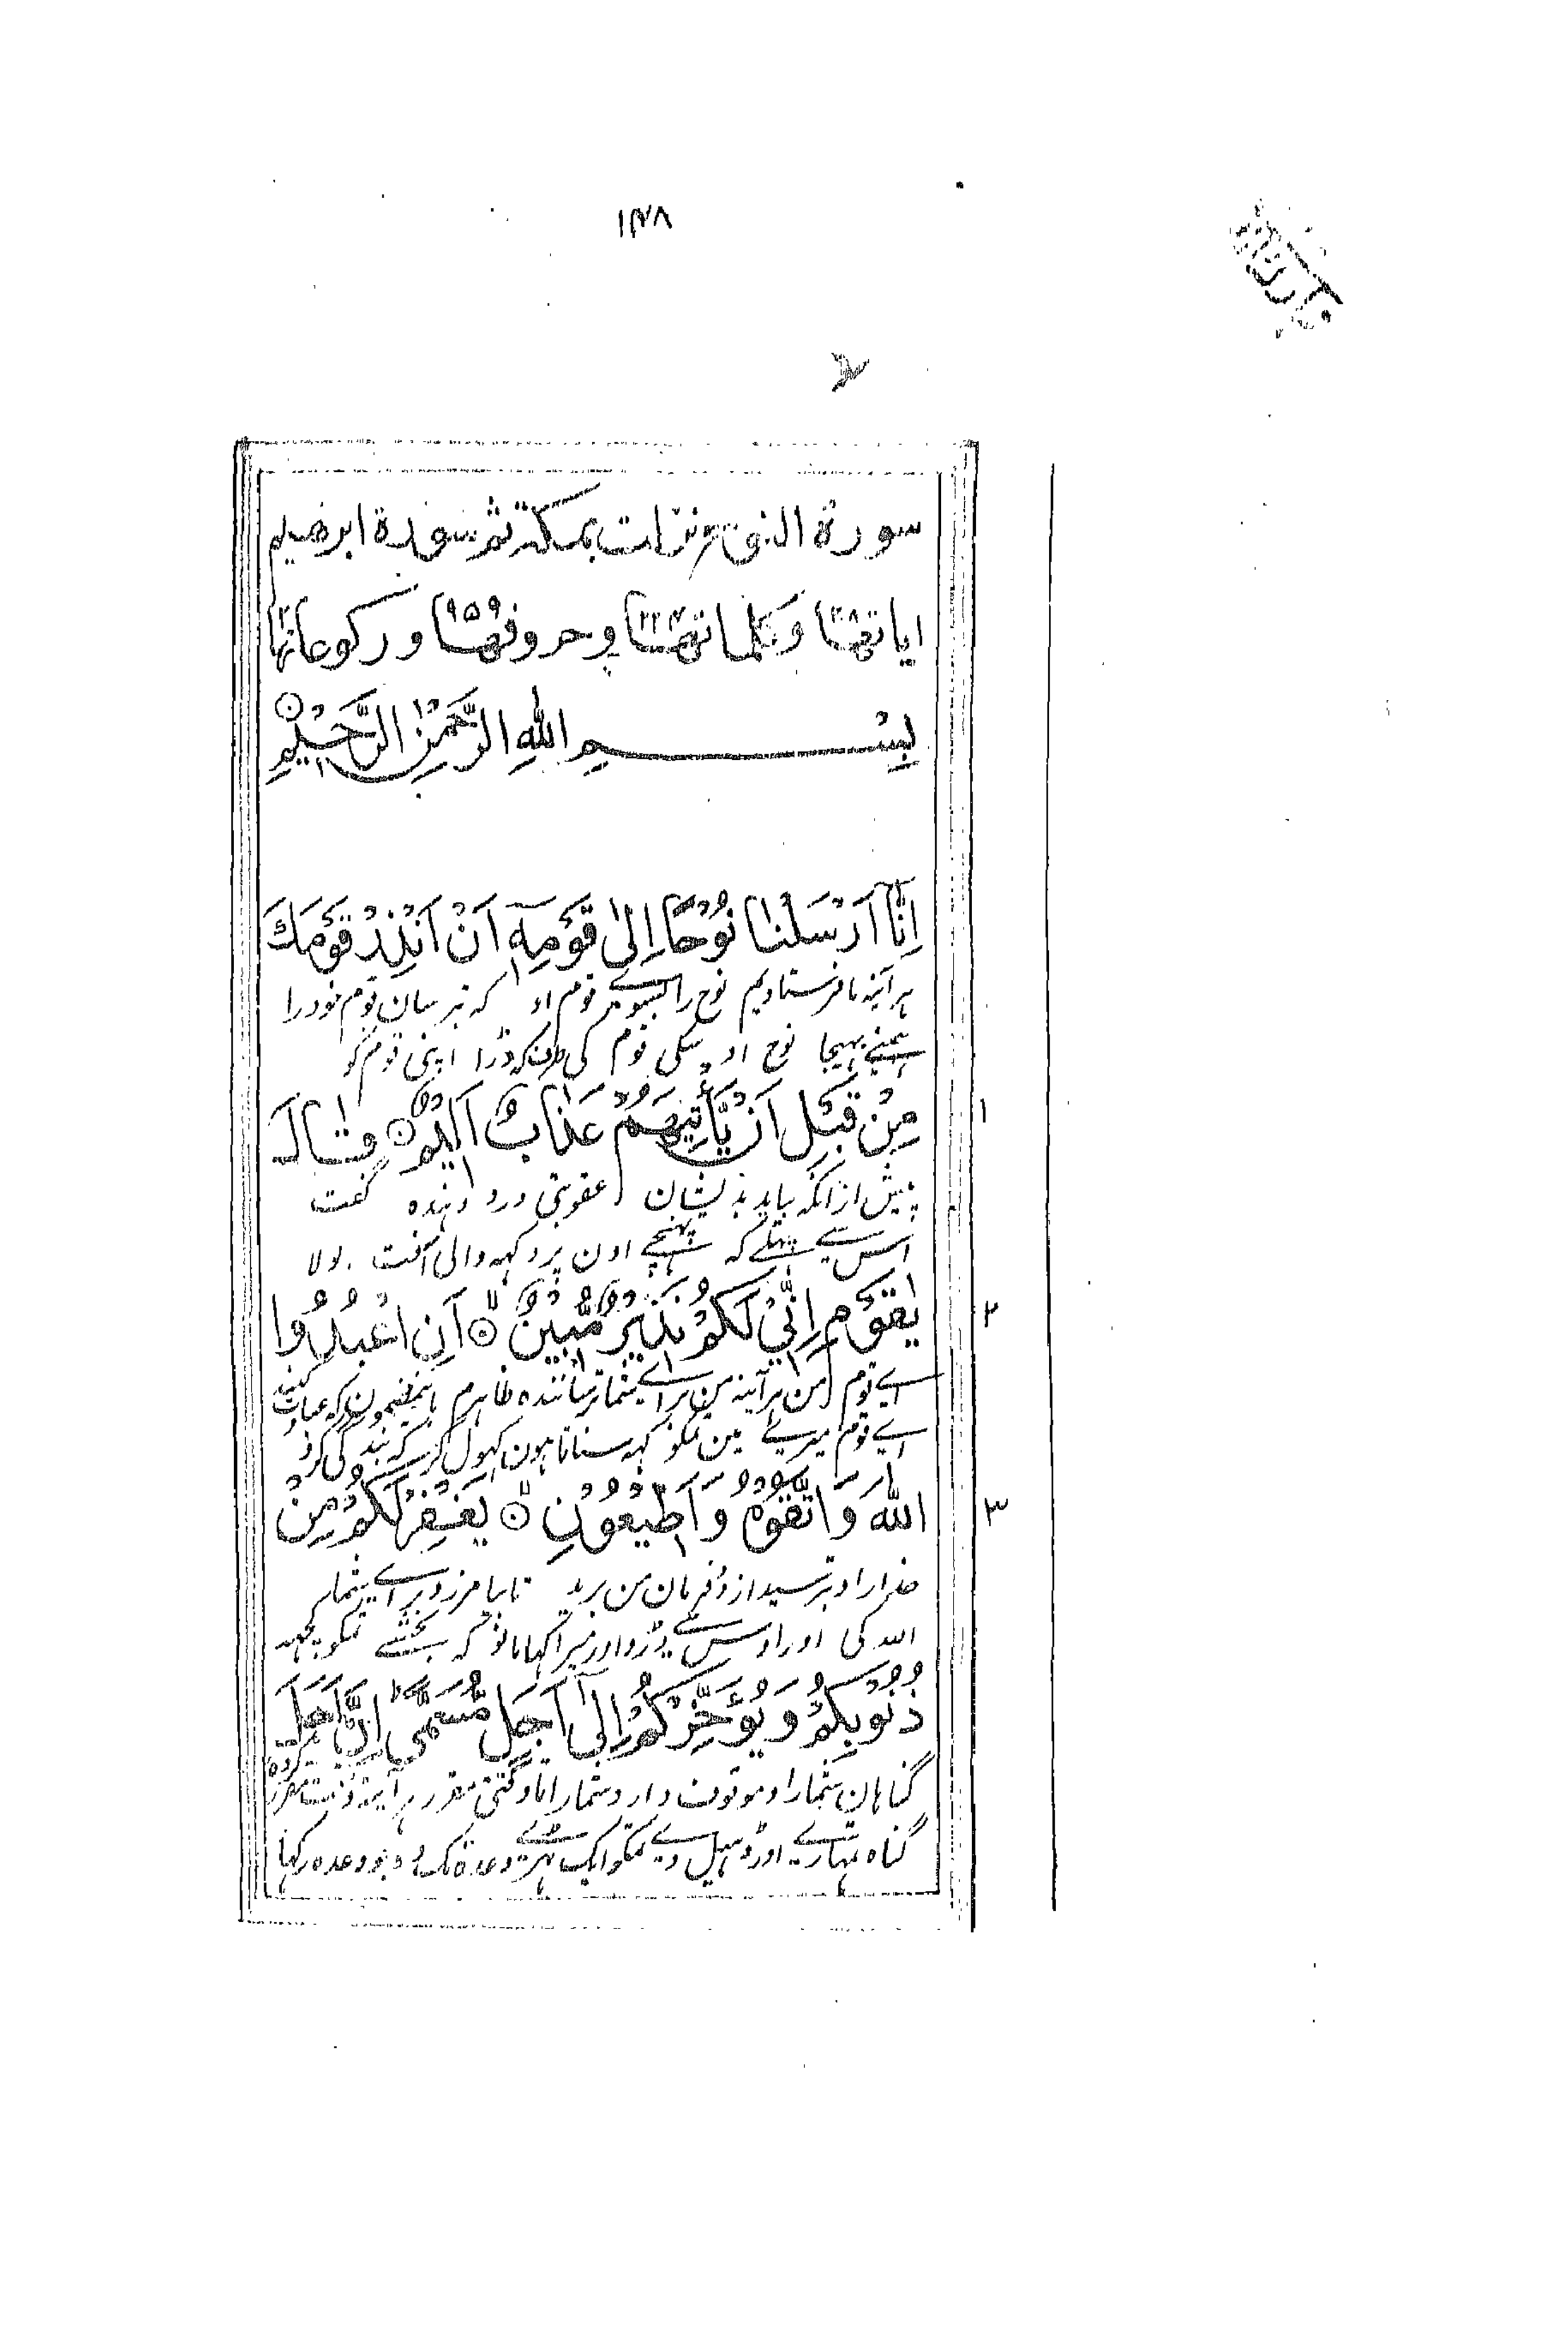 ۱۴۸
سورة النوح نزلت بمكة ثم سورة ابرهيم
اياتها ۲۸ وكلماتها ۲۲۴ وحروفها ۹۵۹ وركوعاتها
بِسْمِ اللهِ الرَّحْمٰنِ الرَّحِيْمِ
اِنَّآ اَرْسَلْنَا نُوْحًا اِلٰى قَوْمِهٖٓ اَنْ اَنْذِرْ قَوْمَكَ
ہر آئینہ ما فرستادیم نوح را بسوے قوم او کہ بترسان قوم خود را
ہمنے بہیجا نوح اوسکی قوم کی طرف کہ ڈرا اپنی قوم کو
مِنْ قَبْلِ اَنْ يَّاْتِيَهُمْ عَذَابٌ اَلِيْمٌ قَالَ
۱
پیش ازانکہ بیاید بدیشان عقوبتی درد دہندہ گفت
اس سے پہلے کہ پہنچے اون پر دکہہ والی آفت بولا
يٰقَوْمِ اِنِّيْ لَكُمْ نَذِيْرٌ مُّبِيْنٌ اَنِ اعْبُدُوا
۲
اے قوم من ہر آئینہ من براے شما ترسانندہ ظاہرم باینمضمون کہ عبادت کنید
اے قوم میرے مین تمکو کہہ سناتا ہون کہول کر کہ بندگی کرو
اللهَ وَاتَّقُوْهُ وَاَطِيْعُوْنِ يَغْفِرْ لَكُمْ مِّنْ
۳
خدا را و بترسید ازو فرمان من برید تا بیامرزد براے شما
اللہ کی اور اوس سے ڈرو اور میرا کہا مانو کہ بخشے تمکو کچہہ
ذُنُوْبِكُمْ وَيُؤَخِّرْكُمْ اِلٰٓى اَجَلٍ مُّسَمًّى اِنَّ اَجَلَ
گناہان شما را و موقوف دارد شما را تا وقتی مقرر ہر آئینہ وقت مقرر کردہ
گناہ تمہارے اور ڈہیل دے تمکو ایک ٹہرے وعدہ تک وہ جو وعدہ رکہا